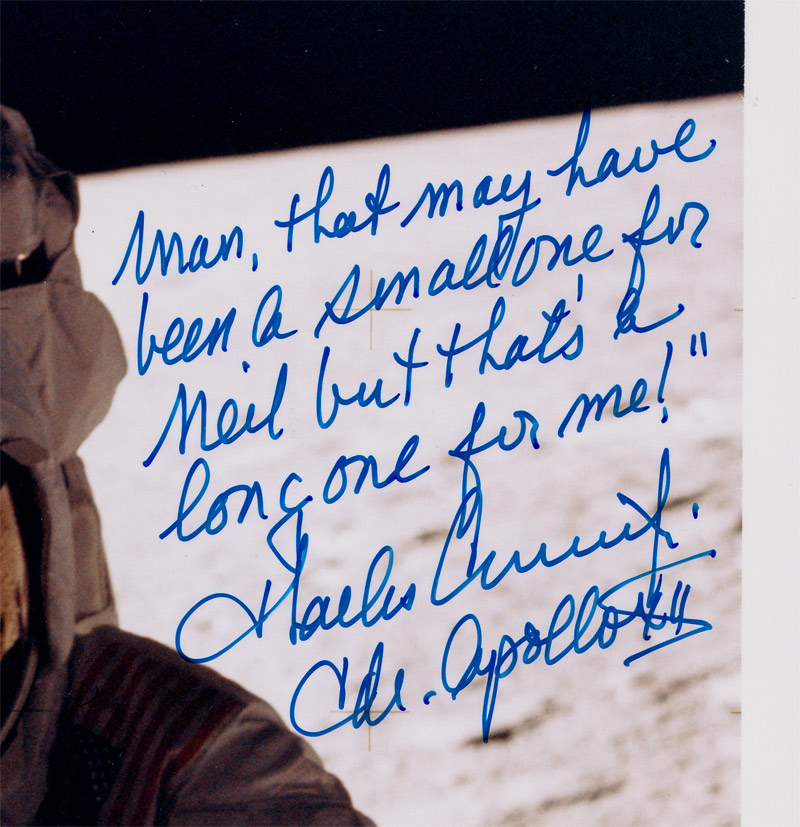 Man, that may have
been a small one for
Neil but that's a
long one for me!"
Charles Conrad Jr.
Cdr. Apollo XII